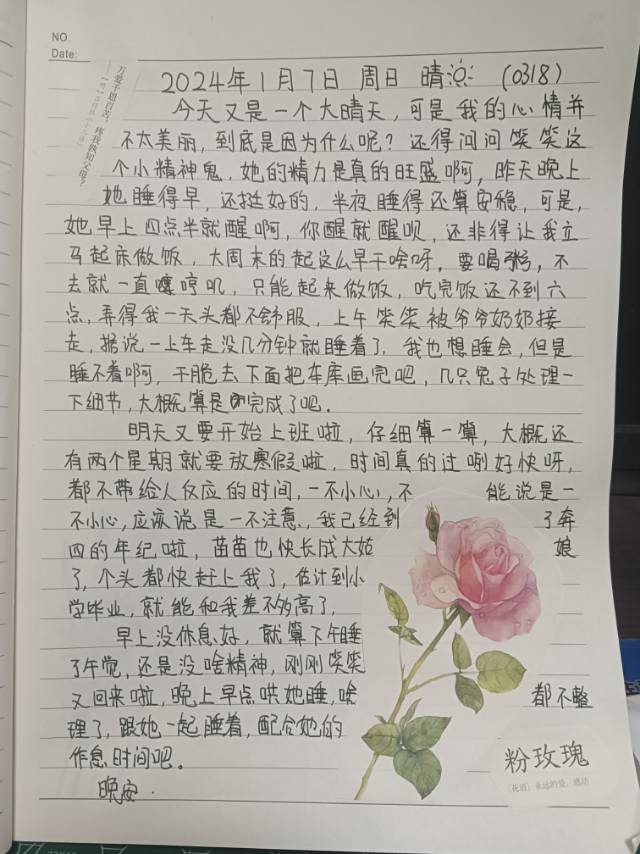 NO.
Date:
万爱千恩百苦，疼我孰知父母？
2024年1月7日 周日 晴 (0318)
今天又是一个大晴天，可是我的心情并
不太美丽，到底是因为什么呢？还得问问笑笑这
个小精神鬼，她的精力是真的旺盛啊，昨天晚上
她睡得早，还挺好的，半夜睡得还算安稳，可是，
她早上四点半就醒啊，你醒就醒呗，还非得让我立
马起床做饭，大周末的起这么早干啥呀，要喝粥，不
去就一直哼叽，只能起来做饭，吃完饭还不到六
点，弄得我一天头都不舒服，上午笑笑被爷爷奶奶接
走，据说一上车走没几分钟就睡着了，我也想睡会，但是
睡不着啊，干脆去下面把车库画完吧，几只兔子处理一
下细节，大概算是完成了吧。
明天又要开始上班啦，仔细算一算，大概还
有两个星期就要放寒假啦，时间真的过咧好快呀，
都不带给人反应的时间，一不小心，不能说是一
不小心，应该说是一不注意，我已经到了奔
四的年纪啦，苗苗也快长成大姑娘
了，个头都快赶上我了，估计到小
学毕业，就能和我差不够高了，
早上没休息好，就算下午睡
了午觉，还是没啥精神，刚刚笑笑
又回来啦，晚上早点哄她睡，啥都不整
理了，跟她一起睡着，配合她的
作息时间吧。
晚安
粉玫瑰
［花语］永远的爱，感动